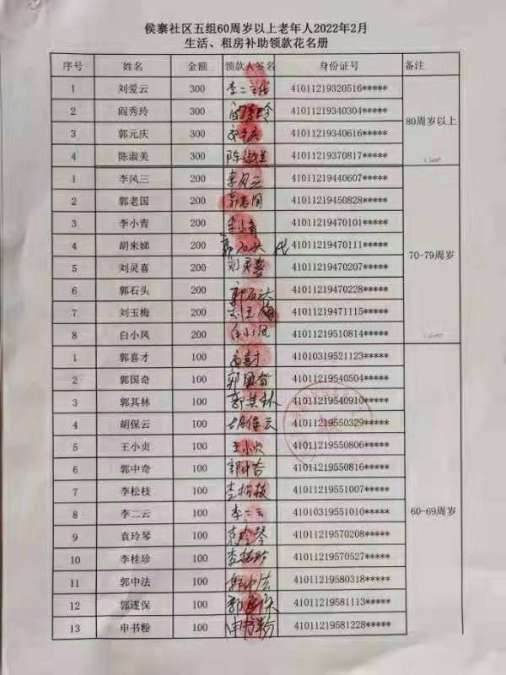 侯寨社区五组60周岁以上老年人2022年2月
生活、租房补助领款花名册
序号 姓名 金额 领款人签名 身份证号 备注
1 刘爱云 300 李二云 41011219320516***** 80周岁以上
2 阎秀玲 300 41011219340304*****
3 郭元庆 300 41011219340616*****
4 陈淑美 300 陈淑美 41011219370817*****
1 李风三 200 41011219440607***** 70-79周岁
2 郭老国 200 郭老国 41011219450828*****
3 李小青 200 李小青 41011219470101*****
4 胡来娣 200 代 41011219470111*****
5 刘灵喜 200 刘灵喜 41011219470207*****
6 郭石头 200 41011219470228*****
7 刘玉梅 200 刘玉梅 41011219471115*****
8 白小风 200 白小风 41011219510814*****
1 郭喜才 100 41010319521123***** 60-69周岁
2 郭国奇 100 郭国奇 41011219540504*****
3 郭其林 100 郭其林 41011219640910*****
4 胡保云 100 胡保云 41011219550329*****
5 王小贞 100 王小贞 41011219550806*****
6 郭中奇 100 郭中奇 41011219550816*****
7 李松枝 100 李松枝 41011219551007*****
8 李二云 100 李二云 41010319551010*****
9 袁玲琴 100 袁玲琴 41011219570208*****
10 李桂珍 100 41011219570527*****
11 郭中法 100 郭中法 41011219580318*****
12 郭遂保 100 41011219581113*****
13 申书粉 100 申书粉 41011219581228*****